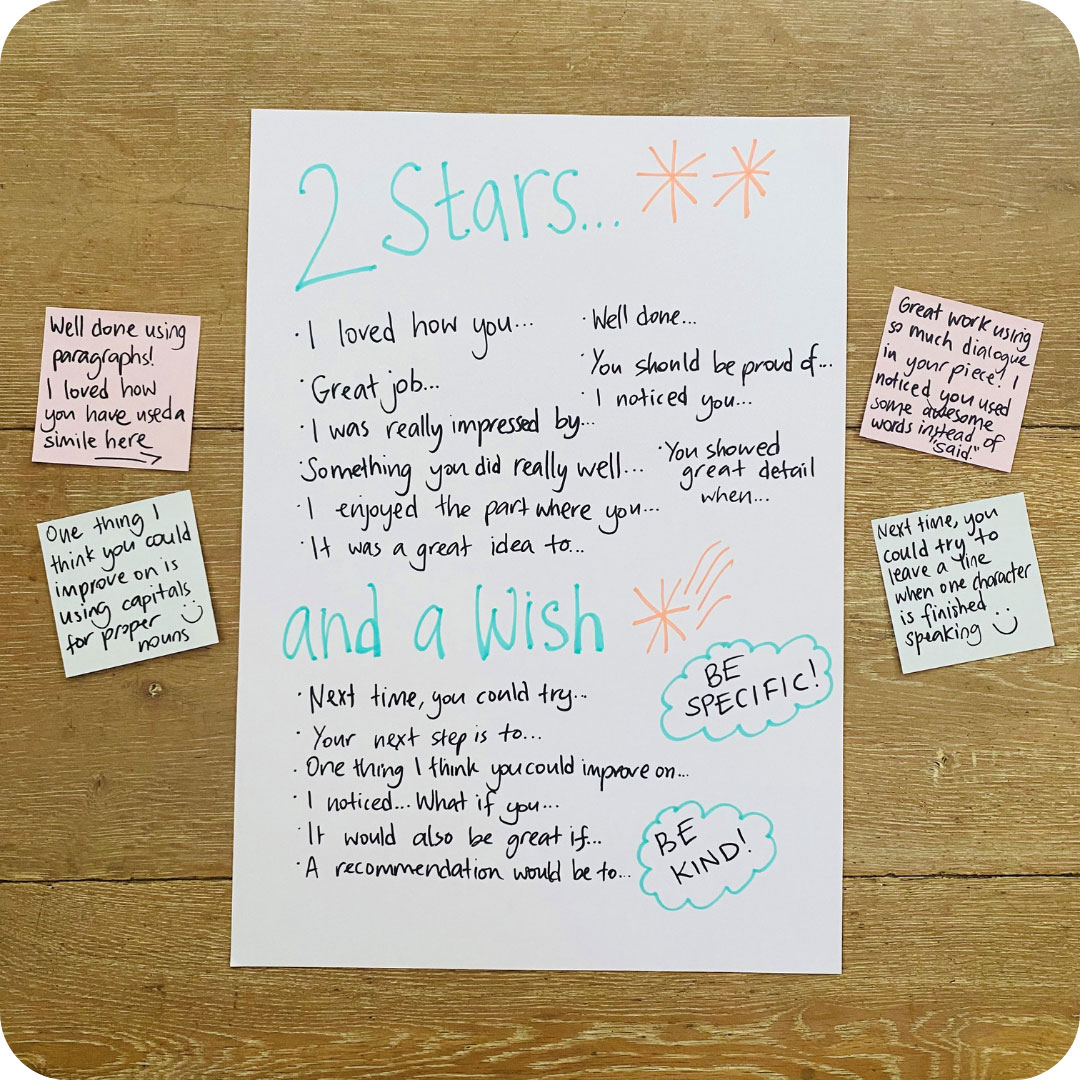 2 Stars...
· I loved how you...
· Great job...
· I was really impressed by...
· Something you did really well...
· I enjoyed the part where you...
· It was a great idea to...
· Well done...
· You should be proud of...
· I noticed you...
· You showed
great detail
when...
and a Wish
· Next time, you could try...
· Your next step is to...
· One thing I think you could improve on...
· I noticed... What if you...
· It would also be great if...
· A recommendation would be to...
BE
SPECIFIC!
BE
KIND!
Well done using
paragraphs!
I loved how
you have used a
simile here
One thing I
think you could
improve on is
using capitals
for proper
nouns
Great work using
so much dialogue
in your piece! I
noticed you used
some awesome
words instead of
"said."
Next time, you
could try to
leave a line
when one character
is finished
speaking